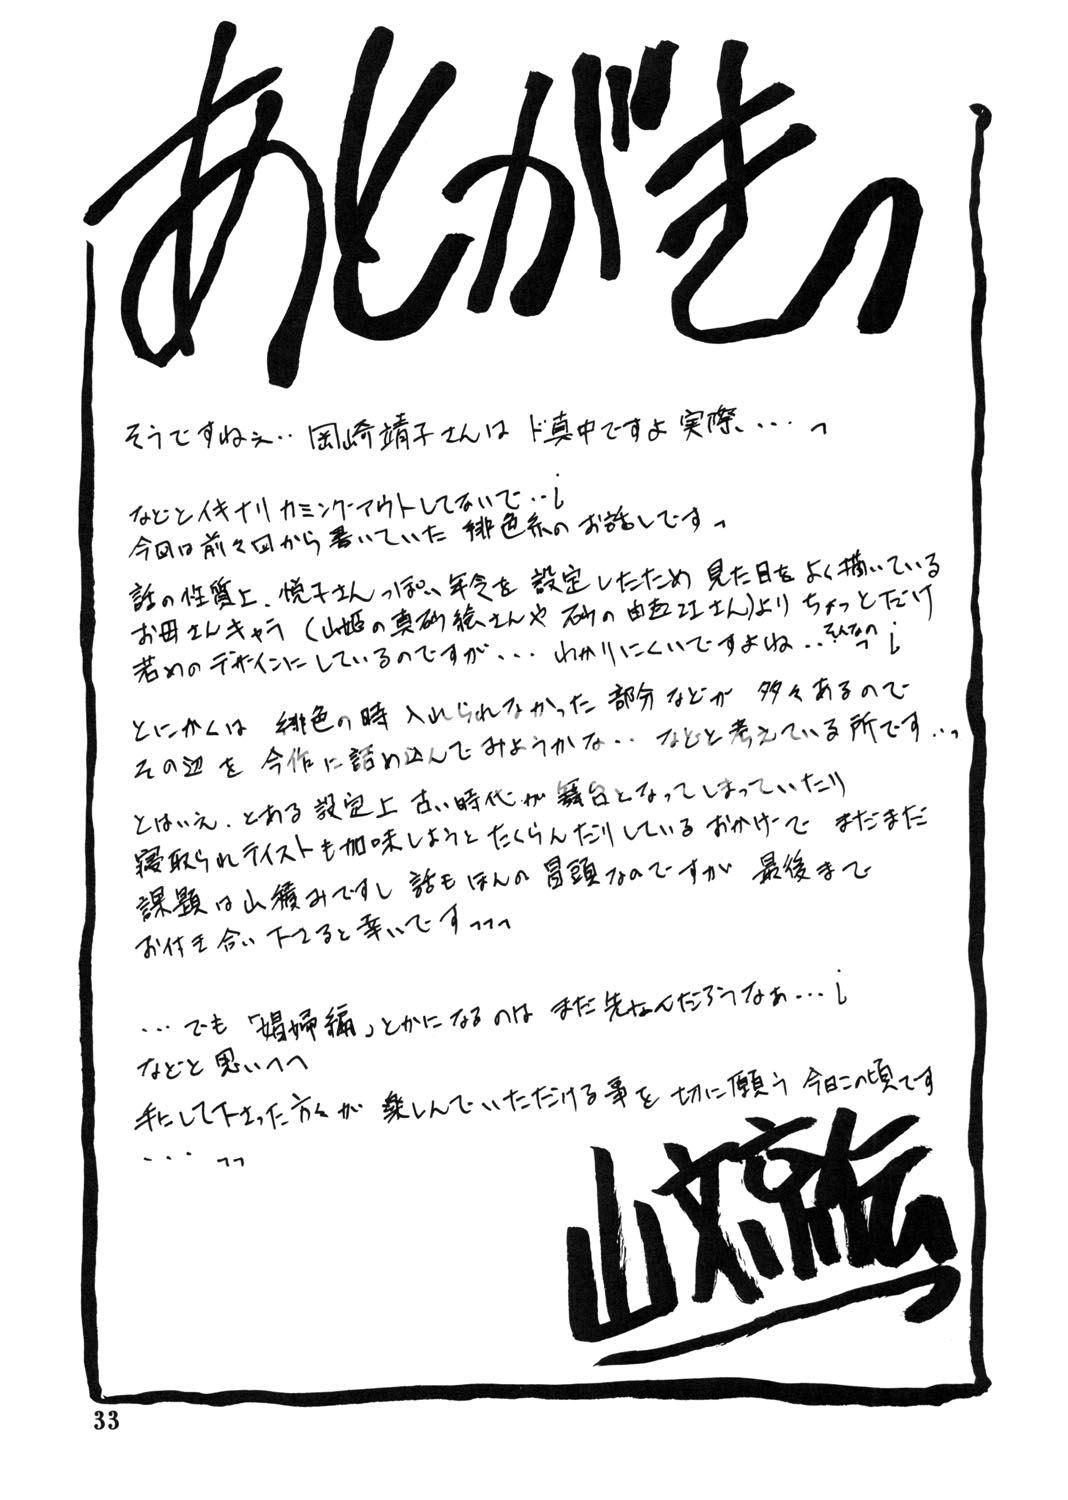 あとがきっ
そうですねぇ‥岡崎靖子さんはド真中ですよ実際、‥‥っ
などとイキナリカミングアウトしてないで‥¡
今回は前々回から書いていた緋色系のお話しですっ
話の性質上、悦子さんっぽい年令を設定したため見た目をよく描いている
お母さんキャラ(山姫の真砂絵さんや砂の由起江さん)よりちょっとだけ
若めのデザインにしているのですが、・・・わかりにくいですよね‥そんなのっ¡
とにかくは緋色の時入れられなかった部分などが多々あるので
その辺を今作に詰め込んでみようかな‥などと考えている所です‥っ
とはいえ、とある設定上古い時代が舞台となってしまっていたり
寝取られテイストも加味しようとたくらんだりしているおかげでまだまだ
課題は山積みですし話もほんの冒頭なのですが最後まで
お付き合い下さると幸いですっっっ
・・・でも「娼婦編」とかになるのはまだ先なんだろうなぁ・・・¡
などと思いつつ
手にして下さった方々が楽しんでいただける事を切に願う今日この頃です
・・・っっ
山文京伝
33